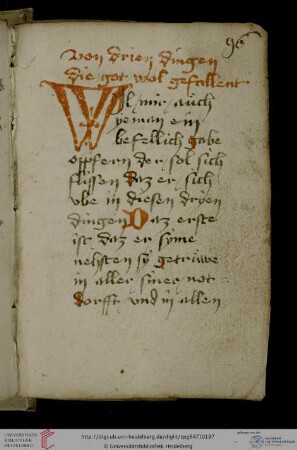 96
von drien dingen
die got wol gefallent
Wil mir auch
yeman ein
befellich gabe
opffern der sol sich
flissen daz er sich
vbe in diesen dryen
dingen Daz erste
ist daz er syme
nehsten sy getrüwe
in aller siner not=
dorfft vnd in allen
UNIVERSITÄTS-
BIBLIOTHEK
HEIDELBERG
http://digi.ub.uni-heidelberg.de/diglit/cpg647/0197
© Universitätsbibliothek Heidelberg